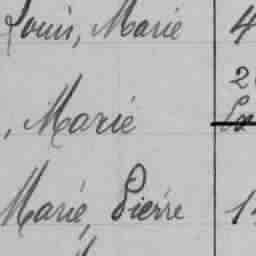 Louis, Marie 4
2
, Marie
Marie, Pierre 1